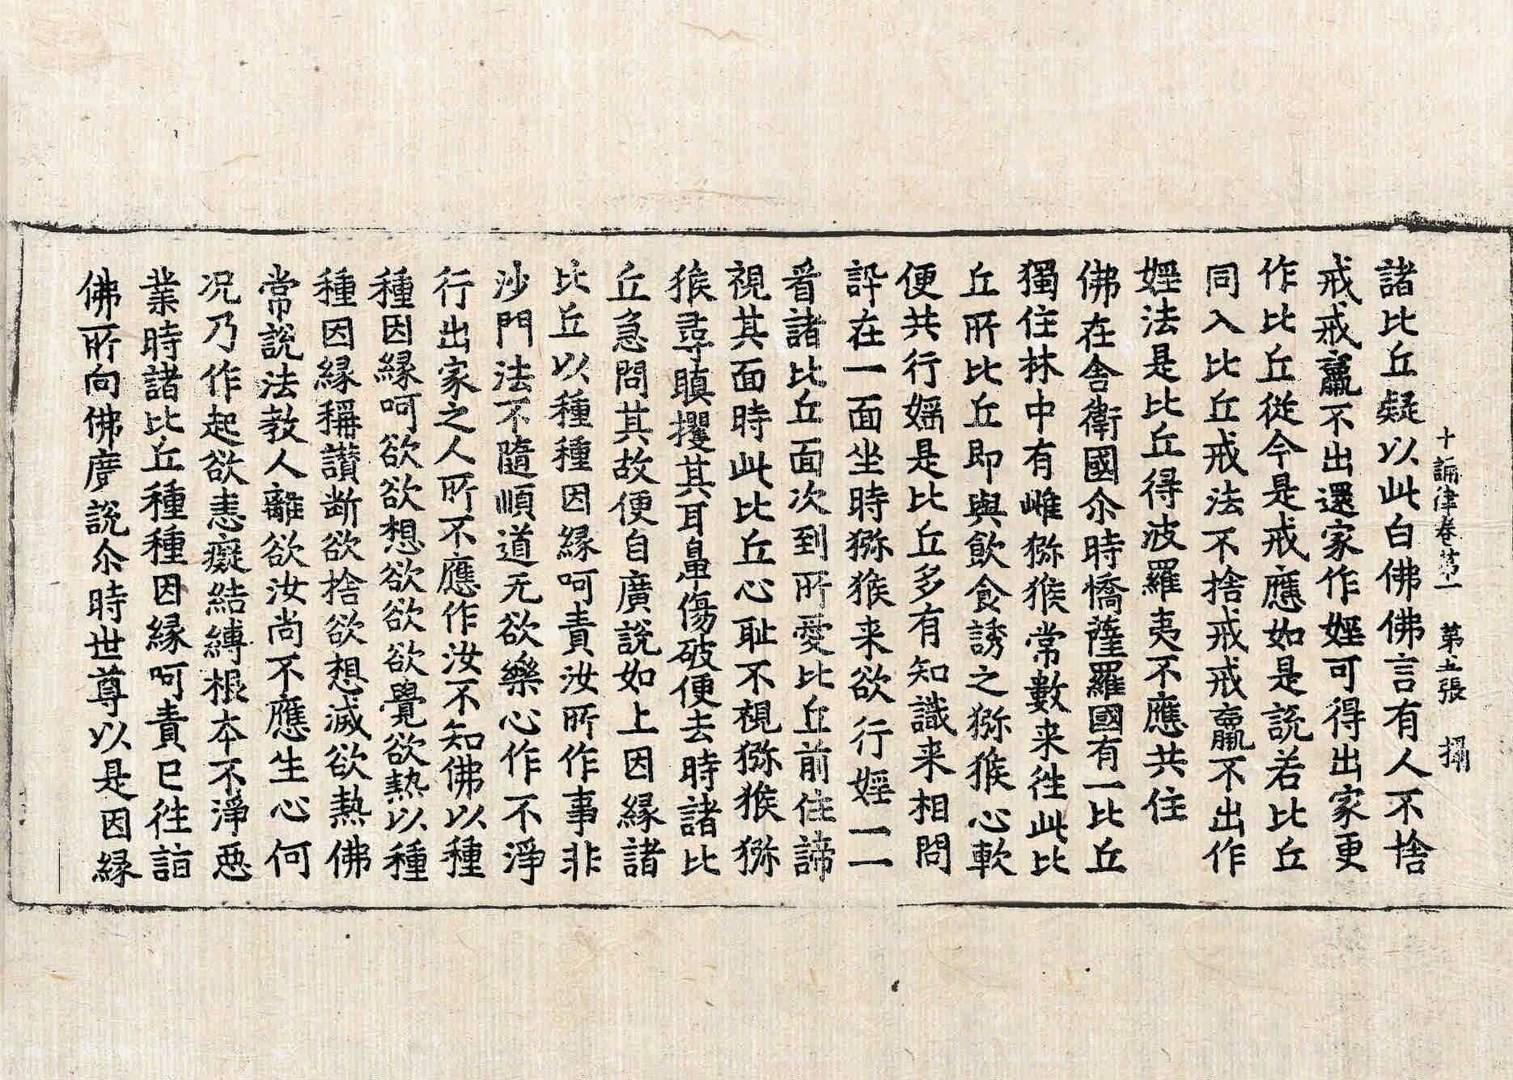 十誦律卷第一　第五張　攝
諸比丘疑以此白佛佛言有人不捨
戒戒羸不出還家作婬可得出家更
作比丘從今是戒應如是說若比丘
同入比丘戒法不捨戒戒羸不出作
婬法是比丘得波羅夷不應共住
佛在舍衛國尒時憍薩羅國有一比丘
獨住林中有雌獼猴常數来徃此比
丘所比丘即與飲食誘之獼猴心軟
便共行婬是比丘多有知識来相問
訊在一面坐時獼猴来欲行婬一一
看諸比丘面次到所愛比丘前住諦
視其面時此比丘心恥不視獼猴獼
猴尋瞋攫其耳鼻傷破便去時諸比
丘急問其故便自廣說如上因緣諸
比丘以種種因緣呵責汝所作事非
沙門法不隨順道无欲樂心作不淨
行出家之人所不應作汝不知佛以種
種因緣呵欲欲想欲欲欲覺欲熱以種
種因緣稱讃断欲捨欲想滅欲熱佛
常說法教人離欲汝尚不應生心何
況乃作起欲恚癡結縛根本不淨惡
業時諸比丘種種因緣呵責已徃詣
佛所向佛廣說尒時世尊以是因緣